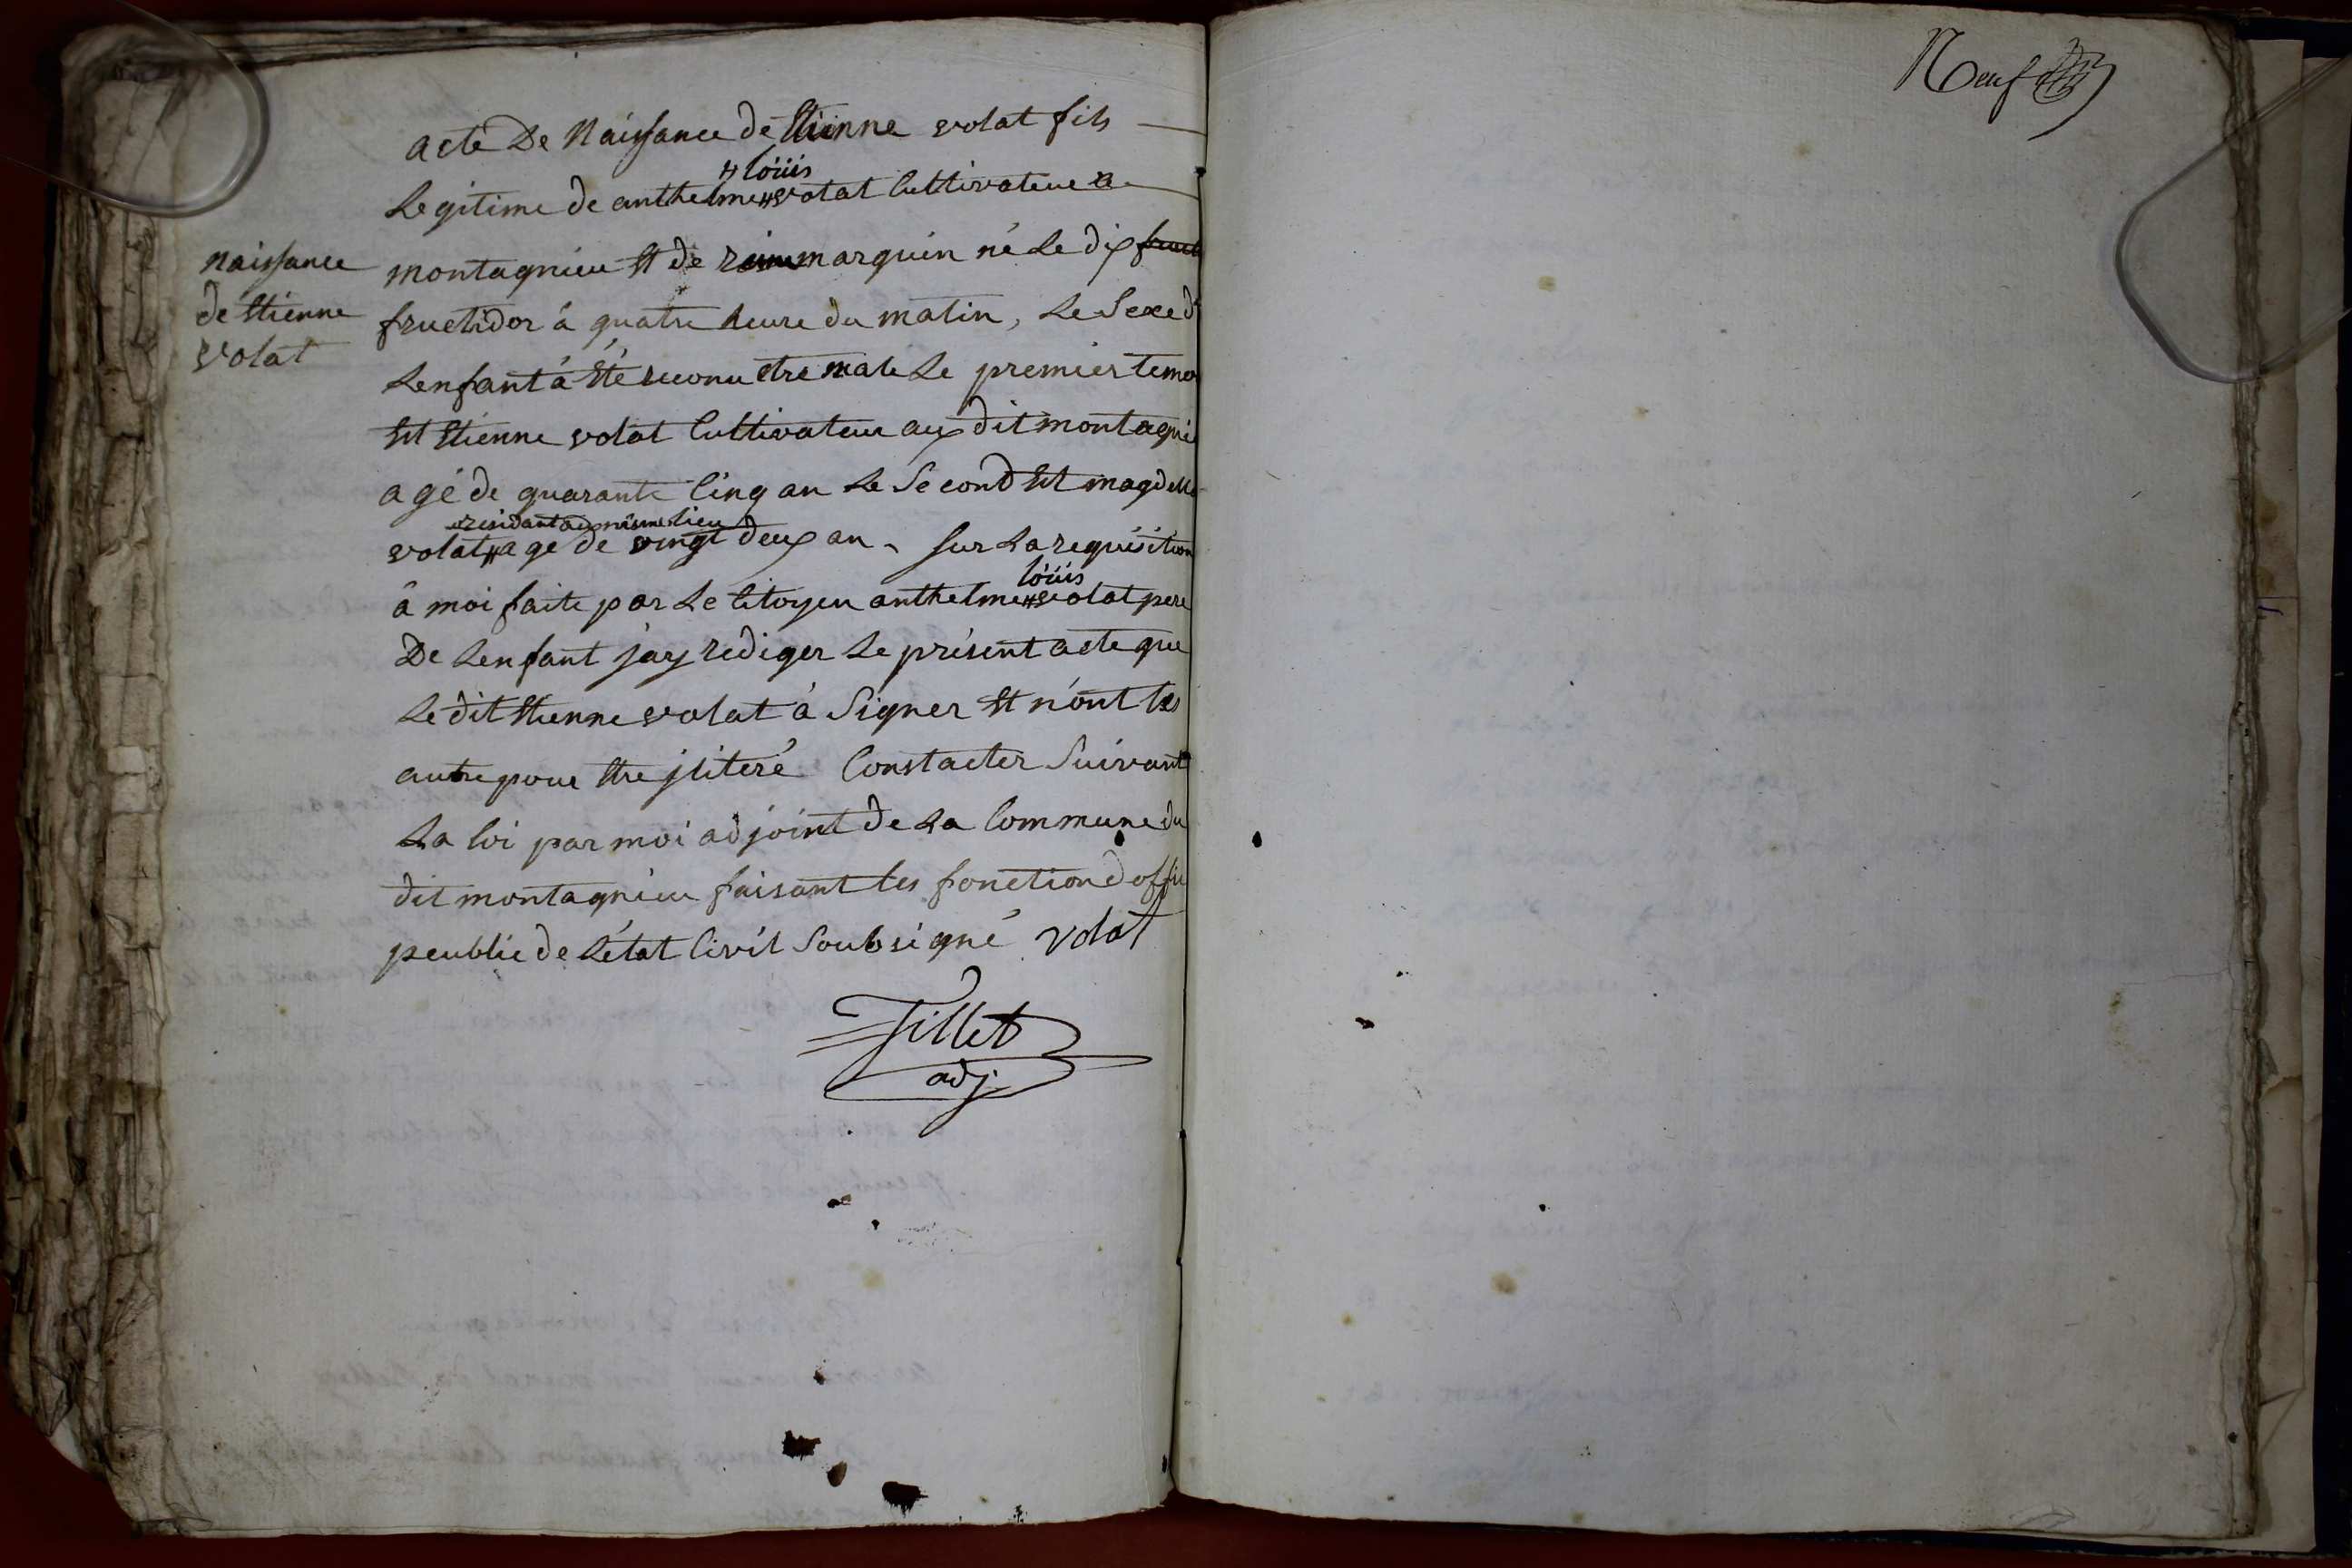 acte De Naissance de Etienne volat fils
# loüis
Legitime de anthelme # volat Cultivateur a
montagnieu Et de marguin né Le dix
fructidor à quatre heure du matin, Le Sexe d
Lenfant à Eté reconu être male Le premier temo
Est Etienne volat Cultivateur aux dit montagni
agé de quarante Cinq an Le Second Est magdel
residant aux même lieu
volat # age de vingt deux an, Sur La requisition
loüis
à moi faite par Le Citoyen anthelme # volat pere
De Lenfant j'ay rediger Le présent acte que
Le dit Etienne volat à Signer Et n'ont les
autre pour Etre jliteré Constacter Suivant
La loi par moi adjoint de La Commune du
dit montagnieu faisant les fonction d offi
peublic de L'état Civil Soubsigné volat
Tillet
adj.
naissance
de Etienne
volat
Neuf